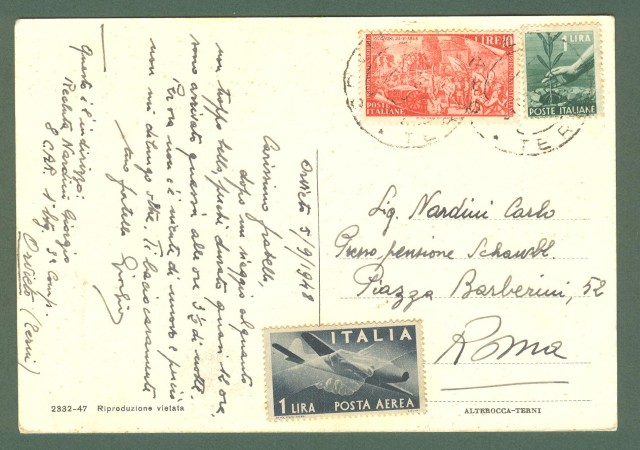 Orvieto 5/9/1948
Carissimo fratello,
dopo un viaggio alquanto
un troppo bello, perché durato quasi 12 ore,
sono arrivato questa alle ore 3½ di notte.
Per ora non c'è niente di nuovo e perciò
non mi dilungo oltre. Ti bacio caramente
tuo fratello Giorgio
Questo è l'indirizzo:
Recluta Nardini Giorgio
8° CAR 1° btg. 3ª Comp.
Orvieto (Terni)
LIRE 10
POSTE
ITALIANE
1 LIRA
POSTE ITALIANE
TER
TER
Sig. Nardini Carlo
Presso pensione
Piazza Barberini, 52
Roma
ITALIA
1 LIRA POSTA AEREA
2332-47 Riproduzione vietata
ALTEROCCA-TERNI